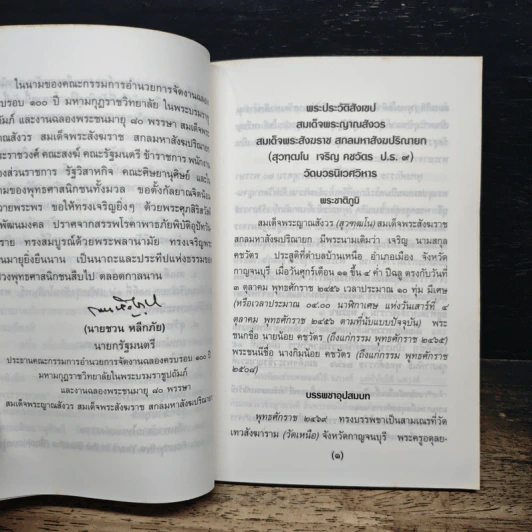 ในนามของคณะกรรมการอำนวยการจัดงานฉลอง
ครบรอบ ๑๐๐ ปี มหามกุฏราชวิทยาลัย ในพระบรม
และงานฉลองพระชนมายุ ๘๐ พรรษา สมเด็จพระ
สมเด็จพระสังฆราช สกลมหาสังฆปริณายก
คณะสงฆ์ คณะรัฐมนตรี ข้าราชการ พนักงาน
ส่วนราชการ รัฐวิสาหกิจ คณะศิษยานุศิษย์ และ
ของพุทธศาสนิกชนทั้งมวล ขอตั้งกัลยาณจิตน้อม
พระพร ขอให้ทรงเจริญยิ่งและพระศุภสิริสวัสดิ์
พิพัฒนมงคล ปราศจากสรรพโรคาพาธภัยพิบัติอุปัทวัน
ทรงสมบูรณ์ด้วยพระพลานามัย ทรงเจริญพระ
ยิ่งยืนนาน เป็นนาถะและประทีปแห่งธรรมของ
พุทธศาสนิกชนสืบไป ตลอดกาลนาน
(นายชวน หลีกภัย)
นายกรัฐมนตรี
ประธานคณะกรรมการอำนวยการจัดงานฉลองครบรอบ ๑๐๐ ปี
มหามกุฏราชวิทยาลัยในพระบรมราชูปถัมภ์
และงานฉลองพระชนมายุ ๘๐ พรรษา
สมเด็จพระญาณสังวร สมเด็จพระสังฆราช สกลมหาสังฆปริณายก
พระประวัติสังเขป
สมเด็จพระญาณสังวร
สมเด็จพระสังฆราช สกลมหาสังฆปริณายก
(สุวฑฺฒโน เจริญ คชวัตร ป.ธ. ๙)
วัดบวรนิเวศวิหาร
พระชาติภูมิ
สมเด็จพระญาณสังวร (สุวฑฺฒโน) สมเด็จพระสังฆราช
สกลมหาสังฆปริณายก มีพระนามเดิมว่า เจริญ นามสกุล
คชวัตร ประสูติที่ตำบลบ้านเหนือ อำเภอเมือง จังหวัด
กาญจนบุรี เมื่อวันศุกร์เดือน ๑๑ ขึ้น ๔ ค่ำ ปีฉลู ตรงกับวันที่
๓ ตุลาคม พุทธศักราช ๒๔๕๖ เวลาประมาณ ๑๐ ทุ่ม มีเศษ
(หรือเวลาประมาณ ๐๔.๐๐ นาฬิกาเศษ แห่งวันเสาร์ที่ ๔
ตุลาคม พุทธศักราช ๒๔๕๖ ตามที่นับแบบปัจจุบัน) พระ
ชนกชื่อ นายน้อย คชวัตร (ถึงแก่กรรม พุทธศักราช ๒๔๖๕)
พระชนนีชื่อ นางกิมน้อย คชวัตร (ถึงแก่กรรม พุทธศักราช
๒๕๐๘)
บรรพชาอุปสมบท
พุทธศักราช ๒๔๖๙ ทรงบรรพชาเป็นสามเณรที่วัด
เทวสังฆาราม (วัดเหนือ) จังหวัดกาญจนบุรี พระครูอดุลย-
(๑)